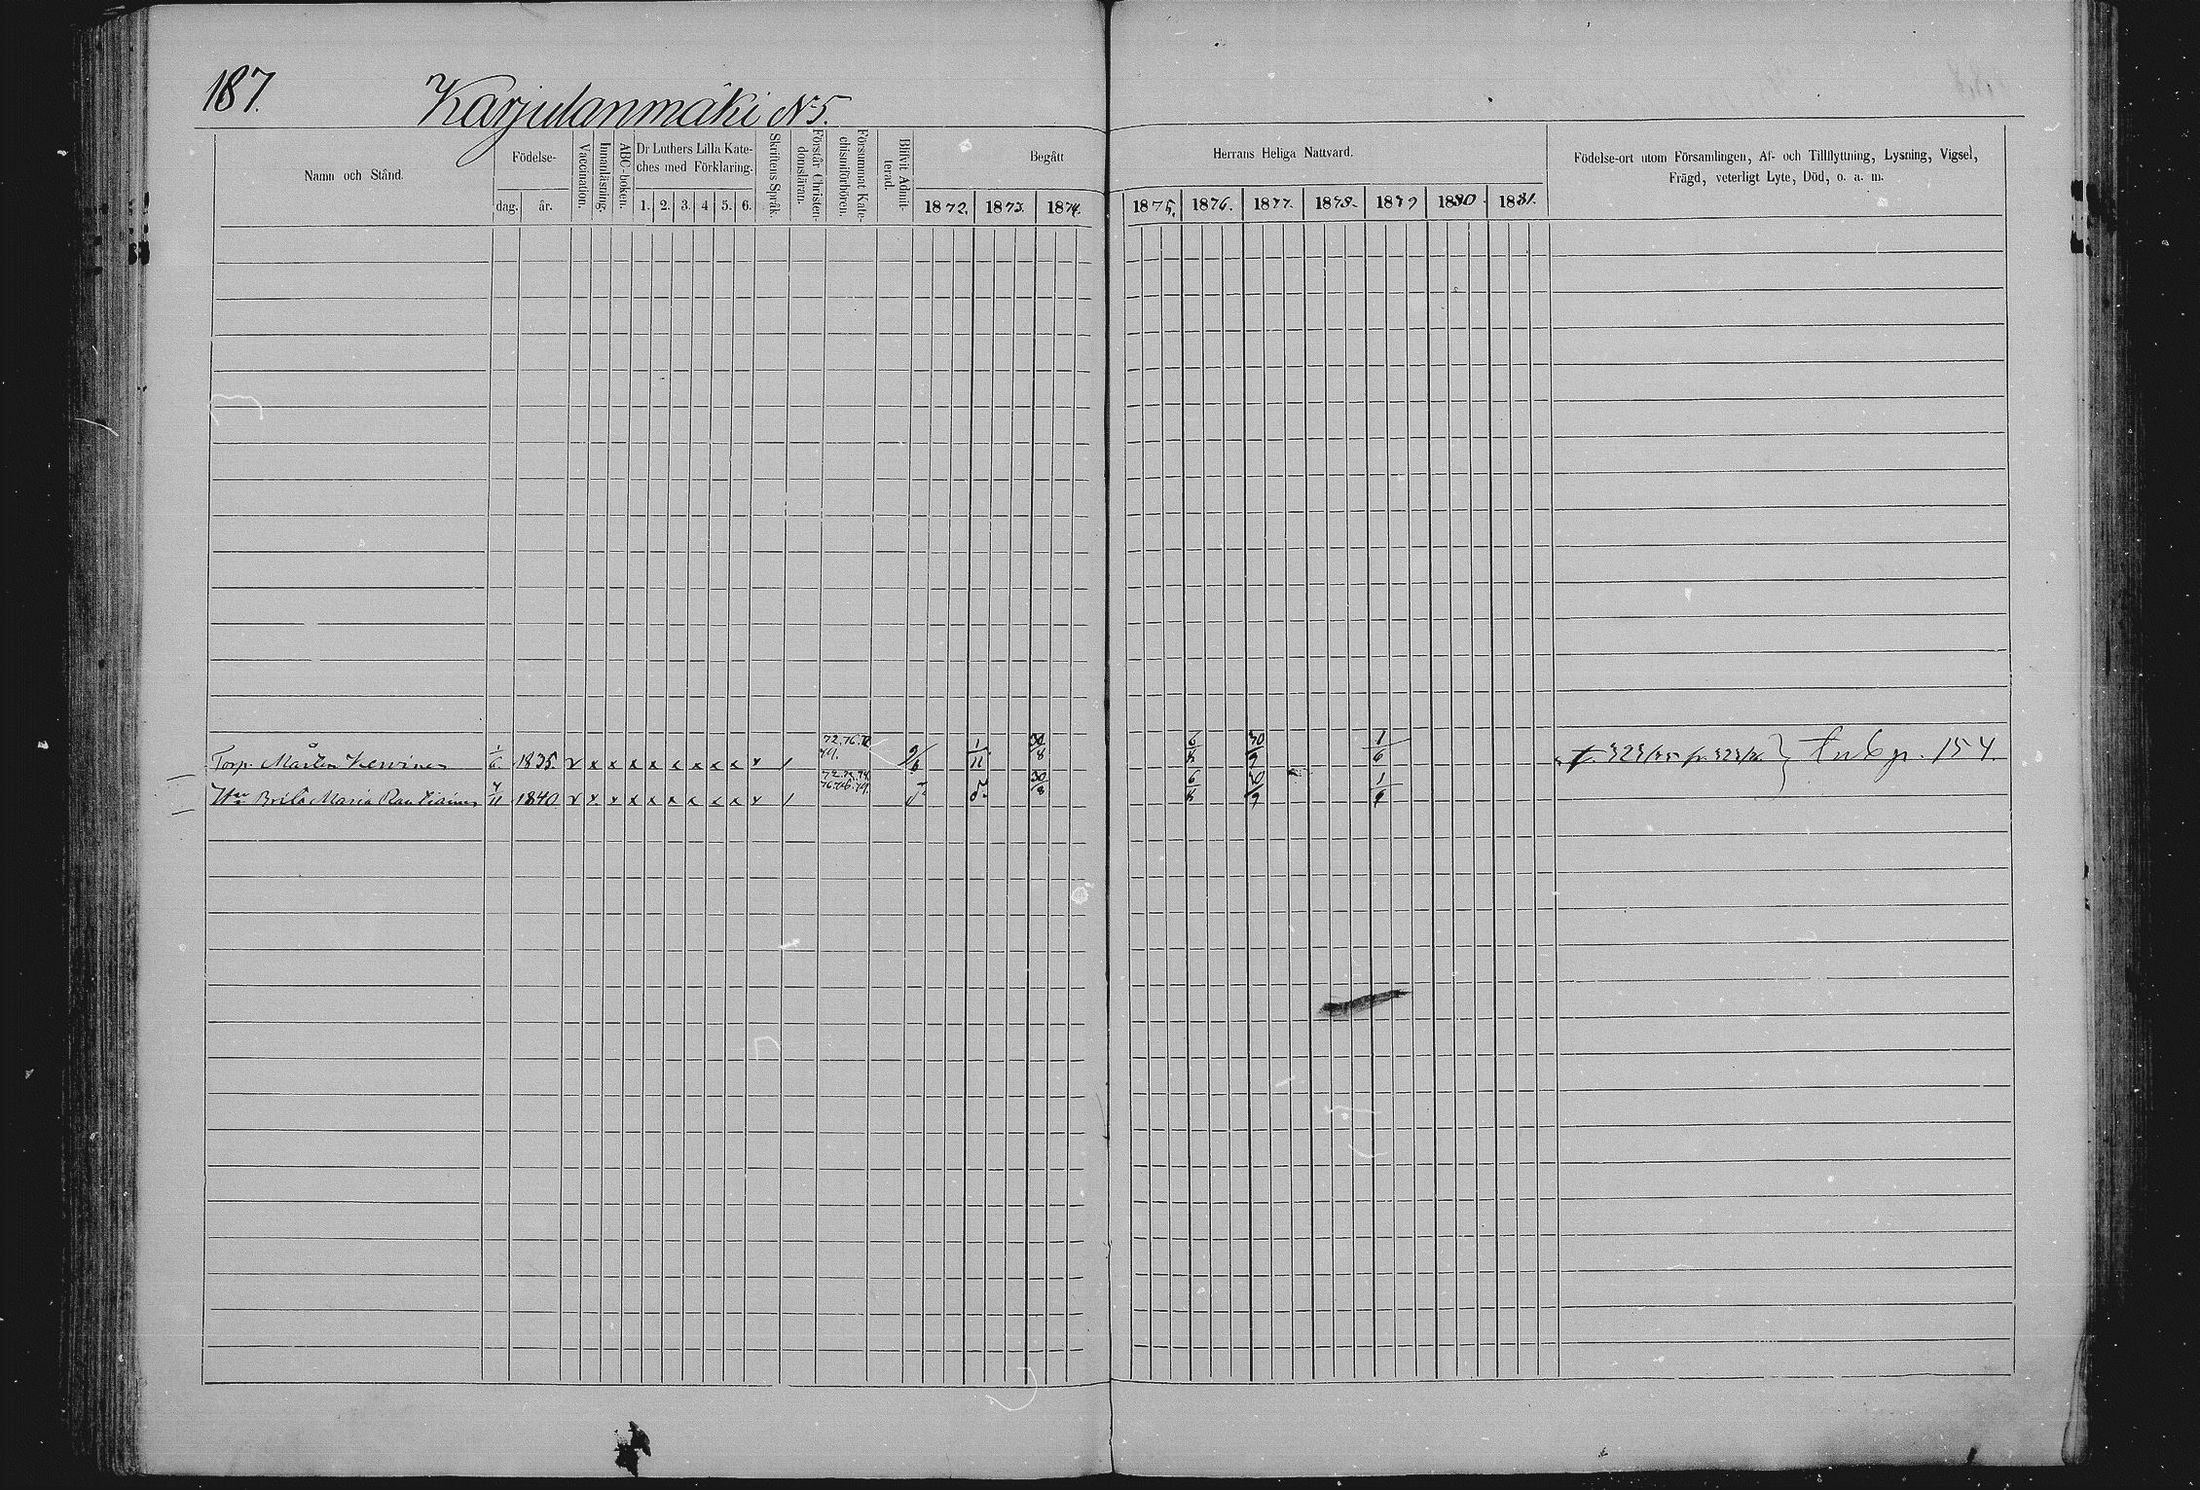 187.
Karjulanmäki N:5.
Namn och Stånd.
Födelse-
dag.
år.
Vaccination.
Innanläsning.
ABC-boken.
Dr Luthers Lilla Kate-
ches med Förklaring.
1. 2. 3. 4 5. 6.
Skriftens Språk.
Förstår Christen-
domsläran.
Försummat Kate-
chismiförhören.
Blifvit Admit-
terad.
Begått
1872. 1873. 1874.
Herrans Heliga Nattvard.
1875. 1876. 1877. 1878. 1879 1880. 1881.
Födelse-ort utom Församlingen, Af- och Tillflyttning, Lysning, Vigsel,
Frägd, veterligt Lyte, Död, o. a. m.
Torp. Mårten Kervinen 1/6 1835 v x x x x x x x x x / 9/6 1/11 30/8 6/8 30/9 1/6 p. 154.
Hu Brita Maria Rautiainen 4/11 1840 v x x x x x x x x x / 30/8 6/8 30/9 1/6